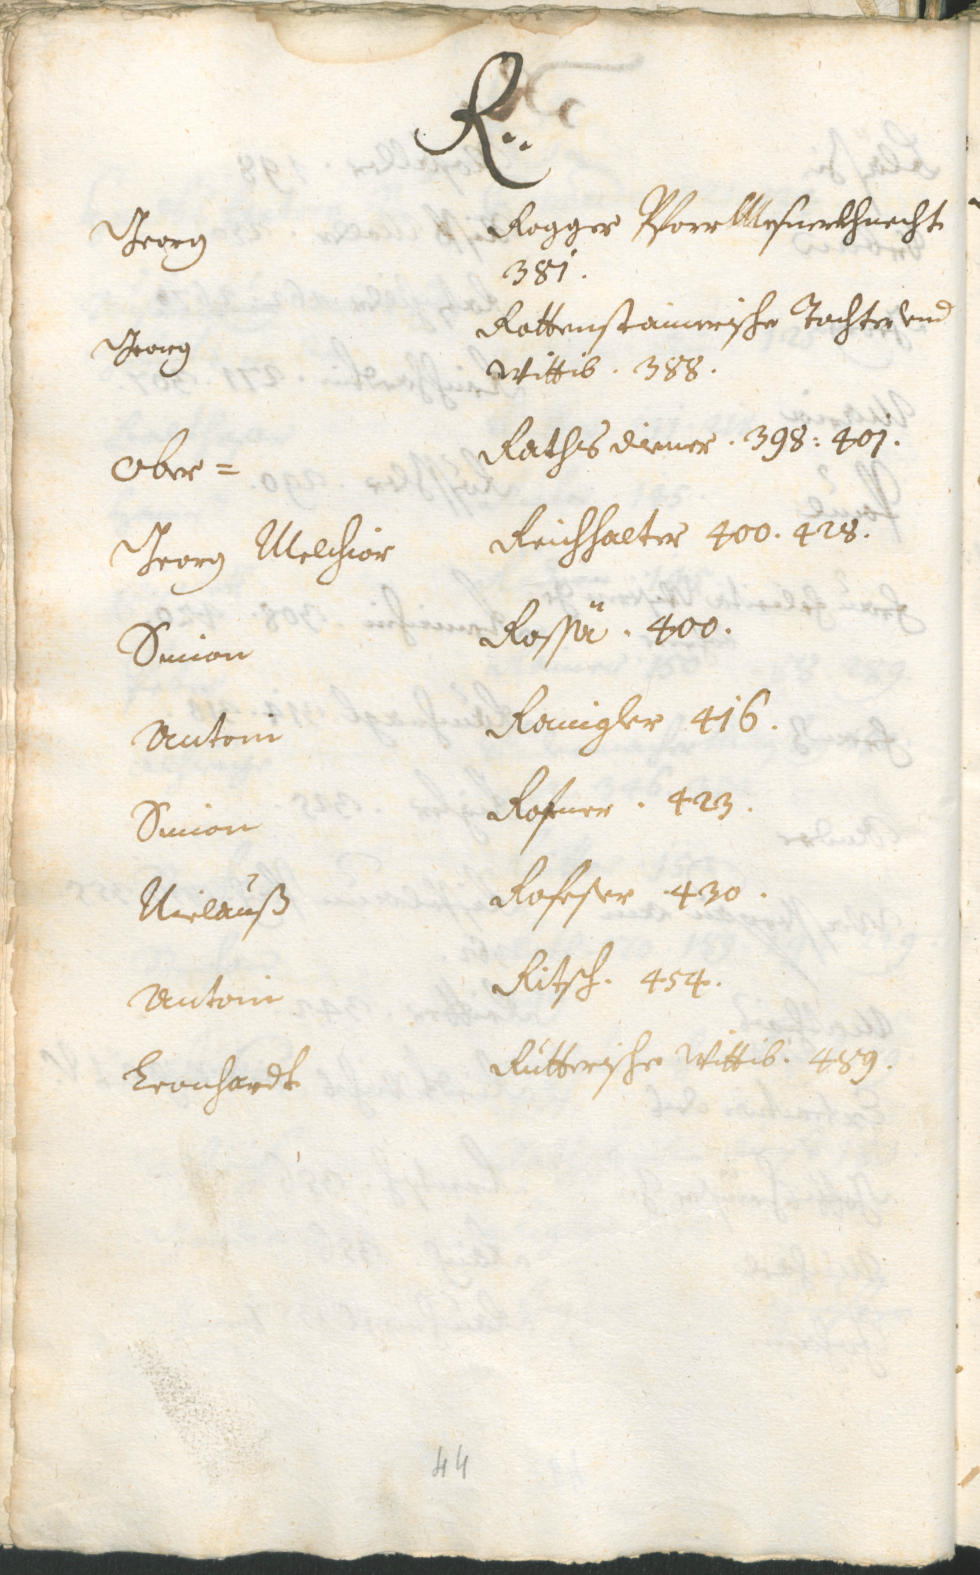 R..
Georg Rogger Pfarr Messnerkhnecht
381.
Georg Rottenstainerische Tochter und
Wittib. 388.
Ober= Raths diener. 398: 401.
Georg Melchior Reichhalter 400. 428.
Simon Rossä. 400.
Antoni Ranigler 416.
Simon Rofner. 423.
Niclauß Rofeser 430.
Antoni Ritsch. 454.
Leonhardt Rutterische Wittib. 489.
44